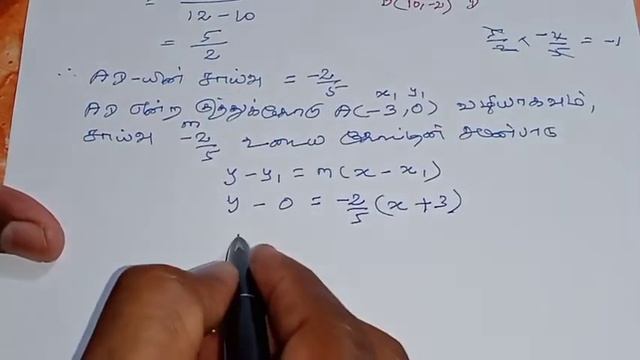 = 12 - 10
D(10, -2)
= 5/2
5/2 × -2/5 = -1
∴ AD-யின் சாய்வு = -2/5
x₁ y₁
AD என்ற குத்துக்கோடு A(-3, 0) வழியாகவும்,
m
சாய்வு -2/5 உடைய கோட்டின் சமன்பாடு
y - y₁ = m(x - x₁)
y - 0 = -2/5 (x + 3)